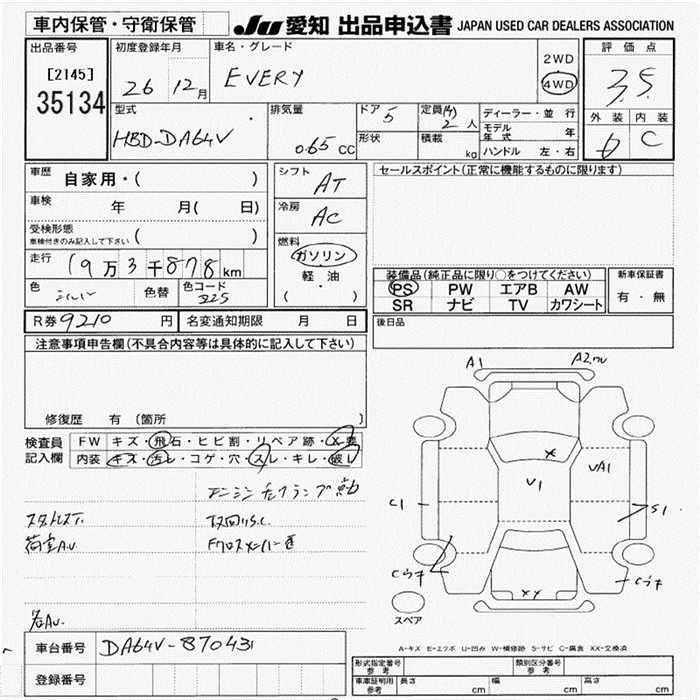 車内保管・守衛保管
JU 愛知 出品申込書 JAPAN USED CAR DEALERS ASSOCIATION
出品番号
[2145]
35134
初度登録年月
26 12月
車名・グレード
EVERY
2WD
4WD
評価点
3.5
外装 内装
C
型式
HBD-DA64V
排気量
0.65 CC
ドア
5
形状
定員
2 人
積載
kg
ディーラー・並行
モデル年式 年
ハンドル 左・右
車歴 自家用・( )
車検 年 月( 日)
受検形態
車検付きのみ記入して下さい ( )
走行 19万3千878km
色 シルバー 色替
色コード
シフト
AT
冷房
AC
燃料
ガソリン
軽・油
( )
セールスポイント(正常に機能するものに限ります)
装備品(純正品に限り○をつけてください)
PS PW エアB AW
SR ナビ TV カワシート
新車保証書
有・無
R券 9210円
名変通知期限 月 日
後日品
注意事項申告欄(不具合内容等は具体的に記入して下さい)
修復歴 有(箇所 )
検査員
記入欄
FW キズ・飛石・ヒビ割・リペア跡・X要
内装 キズ・汚レ・コゲ・穴・スレ・キレ・破レ
エンジンチェックランプ点灯
スタットレスT.
荷室A.U.
下回りS.C.
各AU.
A1
V1
C1
S1
Cウキ
Cウキ
XX
スペア
A-キズ E-エクボ U-凹み W-補修跡 S-サビ C-腐食 XX-交換済
車台番号
DA64V-870431
登録番号
形式指定番号
参考
類別区分番号
参考
車庫証明用
参考
長さ cm
幅 cm
高さ cm